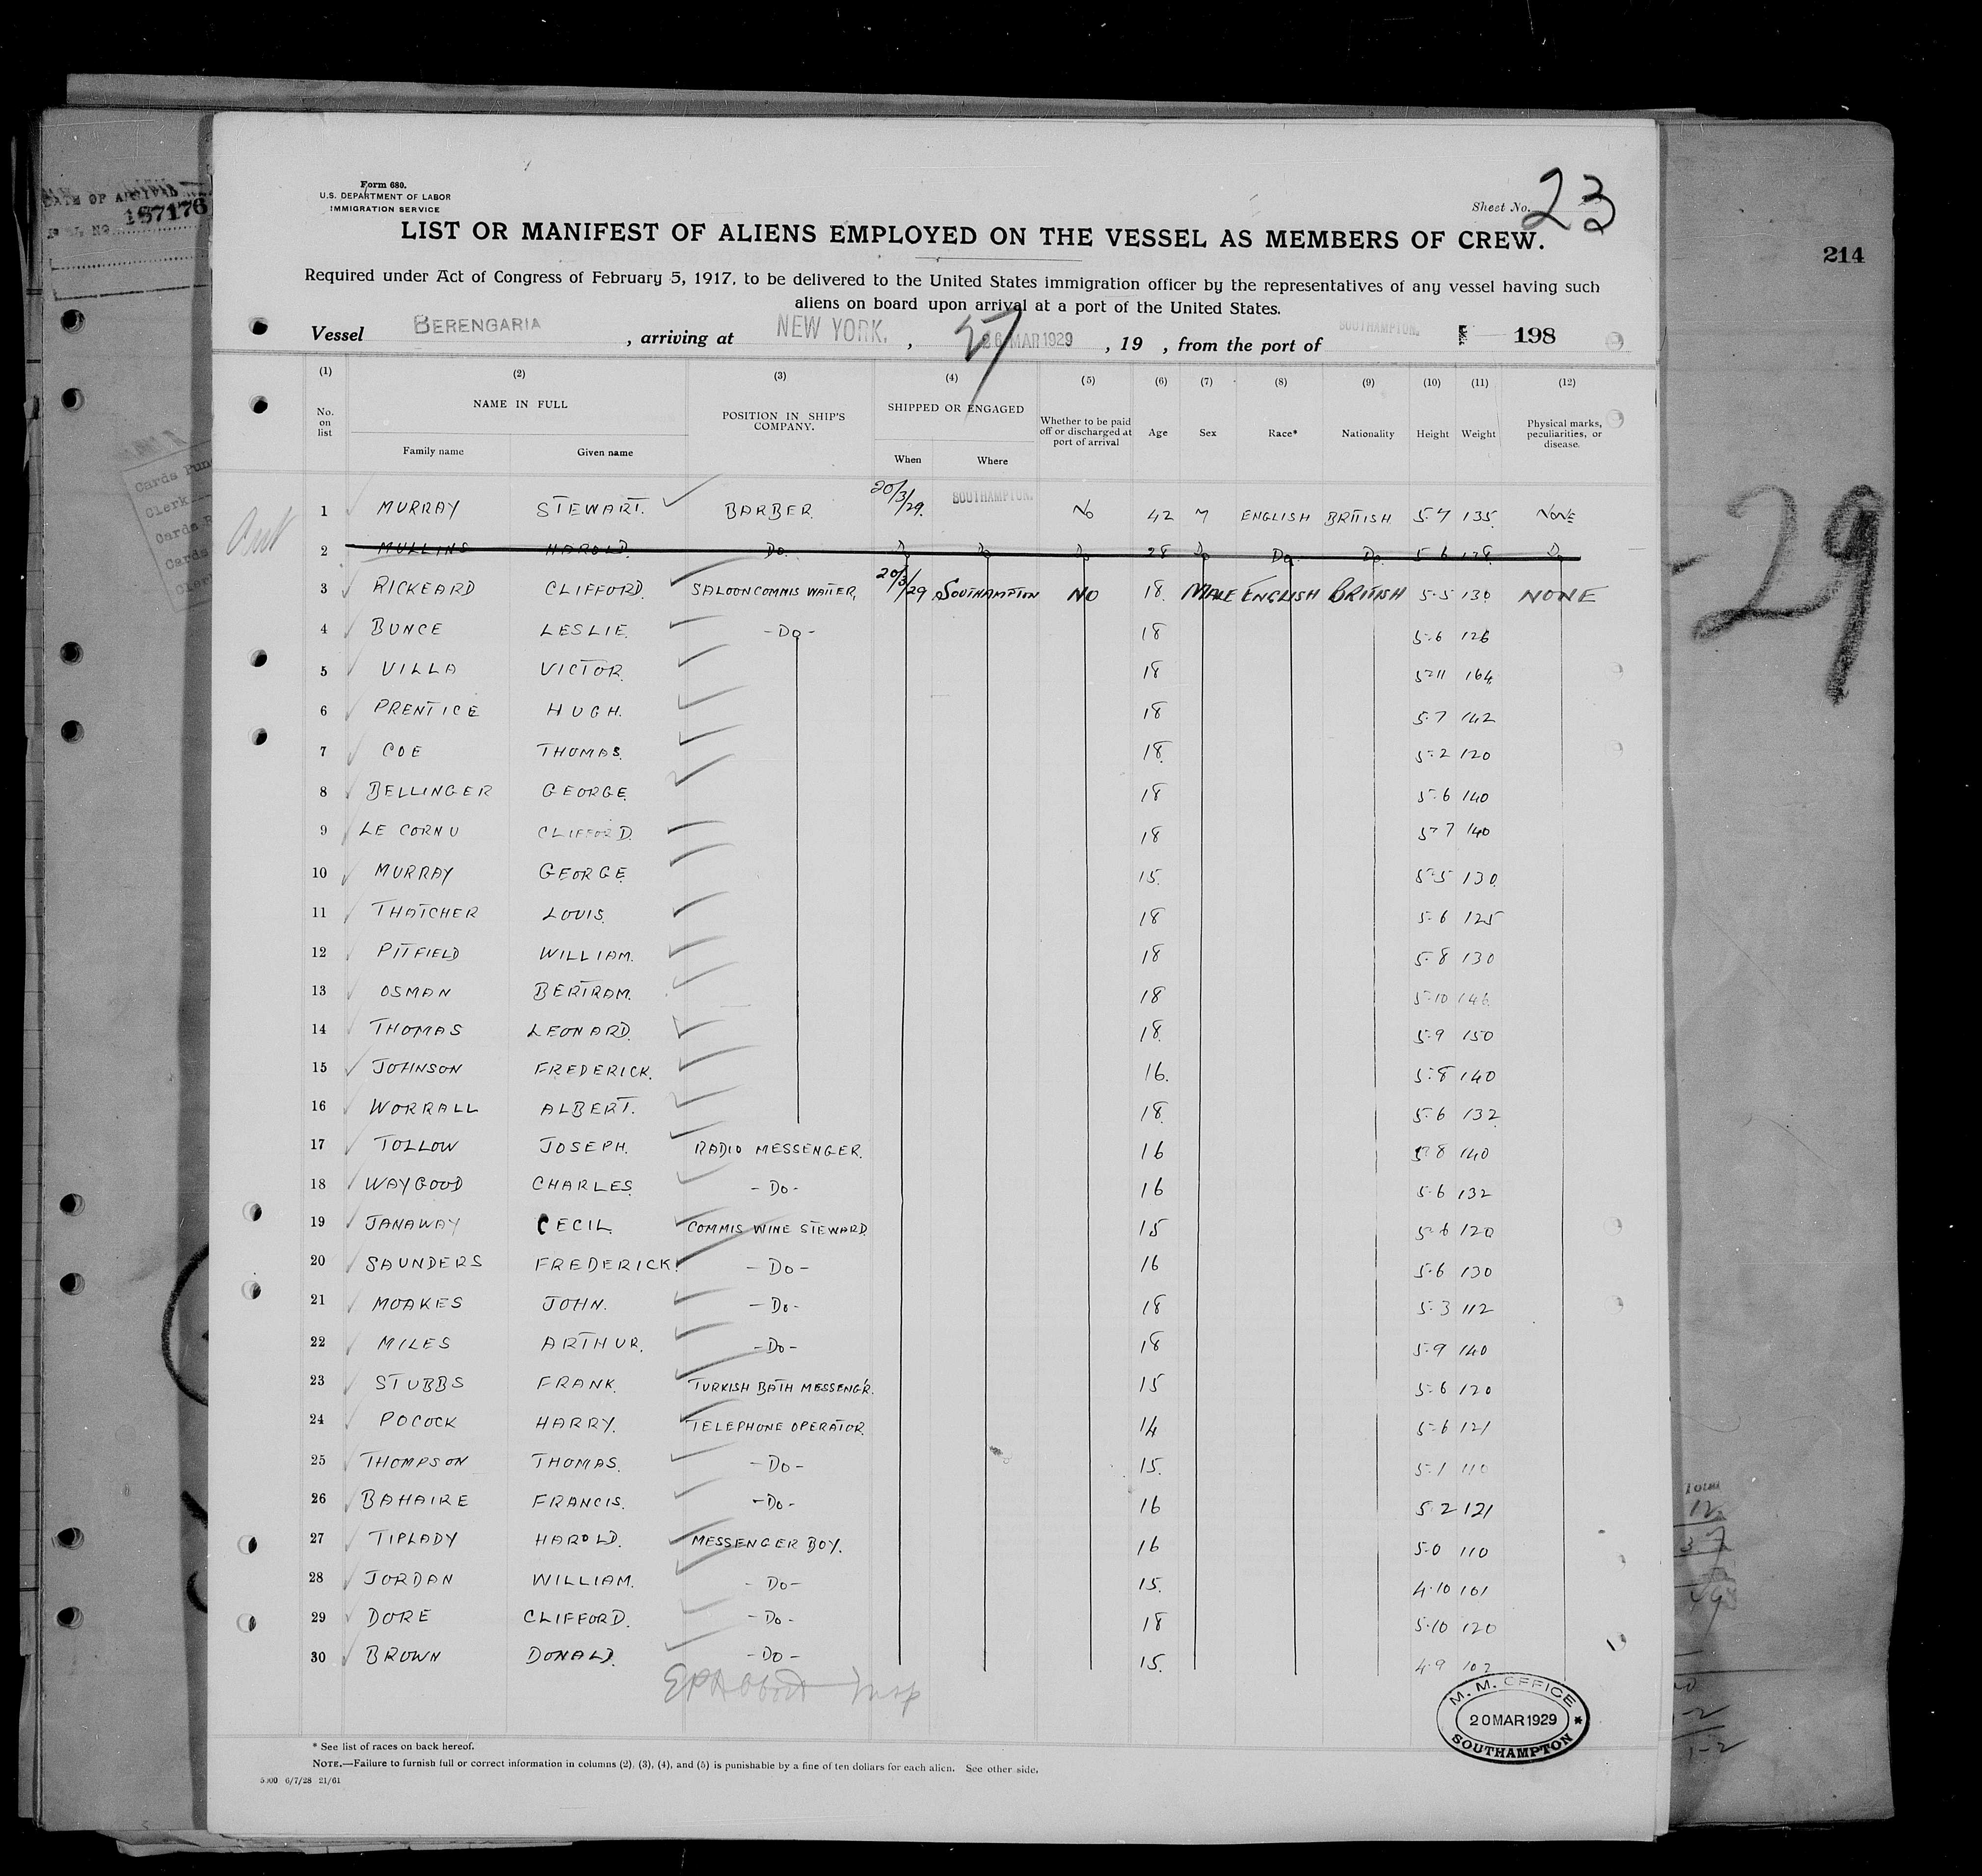 Form 680.
U.S. DEPARTMENT OF LABOR
IMMIGRATION SERVICE
Sheet No. 23
LIST OR MANIFEST OF ALIENS EMPLOYED ON THE VESSEL AS MEMBERS OF CREW.
Required under Act of Congress of February 5, 1917, to be delivered to the United States immigration officer by the representatives of any vessel having such
aliens on board upon arrival at a port of the United States.
Vessel BERENGARIA, arriving at NEW YORK., 27 26 MAR 1929, 19 , from the port of SOUTHAMPTON. 198
(1) (2) (3) (4) (5) (6) (7) (8) (9) (10) (11) (12)
No. on list NAME IN FULL Family name Given name POSITION IN SHIP'S COMPANY. SHIPPED OR ENGAGED When Where Whether to be paid off or discharged at port of arrival Age Sex Race* Nationality Height Weight Physical marks, peculiarities, or disease.
1 MURRAY STEWART. BARBER. 20/3/29. SOUTHAMPTON. No 42 M ENGLISH BRITISH 5.7 135 NONE
2 MULLINS HAROLD. Do. Do Do Do 28 Do Do. Do. 5 6 138 Do
3 RICKEARD CLIFFORD. SALOON COMMIS WAITER, 20/3/29 SOUTHAMPTON NO 18. MALE ENGLISH BRITISH 5.5 130 NONE
4 BUNCE LESLIE. -Do- 18 5.6 126
5 VILLA VICTOR. 18 5.11 164
6 PRENTICE HUGH. 18 5.7 142
7 COE THOMAS. 18. 5.2 120
8 BELLINGER GEORGE. 18 5.6 140
9 LE CORNU CLIFFORD. 18 5.7 140
10 MURRAY GEORGE. 15. 5.5 130
11 THATCHER LOUIS. 18 5.6 125
12 PITFIELD WILLIAM. 18 5.8 130
13 OSMAN BERTRAM. 18 5.10 146
14 THOMAS LEONARD. 18. 5.9 150
15 JOHNSON FREDERICK. 16. 5.8 140
16 WORRALL ALBERT. 18. 5.6 132
17 TOLLOW JOSEPH. RADIO MESSENGER. 16 5.8 140
18 WAYGOOD CHARLES. -Do- 16 5.6 132
19 JANAWAY CECIL. COMMIS WINE STEWARD. 15 5.6 120
20 SAUNDERS FREDERICK. -Do- 16 5.6 130
21 MOAKES JOHN. -Do- 18 5.3 112
22 MILES ARTHUR. -Do- 18 5.9 140
23 STUBBS FRANK. TURKISH BATH MESSENG'R. 15 5.6 120
24 POCOCK HARRY. TELEPHONE OPERATOR. 14 5.6 121
25 THOMPSON THOMAS. -Do- 15. 5.1 110
26 BAHAIRE FRANCIS. -Do- 16 5.2 121
27 TIPLADY HAROLD. MESSENGER BOY. 16 5.0 110
28 JORDAN WILLIAM. -Do- 15. 4.10 101
29 DORE CLIFFORD. -Do- 18 5.10 120
30 BROWN DONALD. -Do- 15. 4.9 102
Insp
M. M. OFFICE
20 MAR 1929
SOUTHAMPTON
* See list of races on back hereof.
NOTE.—Failure to furnish full or correct information in columns (2), (3), (4), and (5) is punishable by a fine of ten dollars for each alien. See other side.
5000 6/7/28 21/61
DATE OF ARRIVAL
187176
Cards Pun
Clerk
Cards
Cards
214
-29
Total
12
37
49